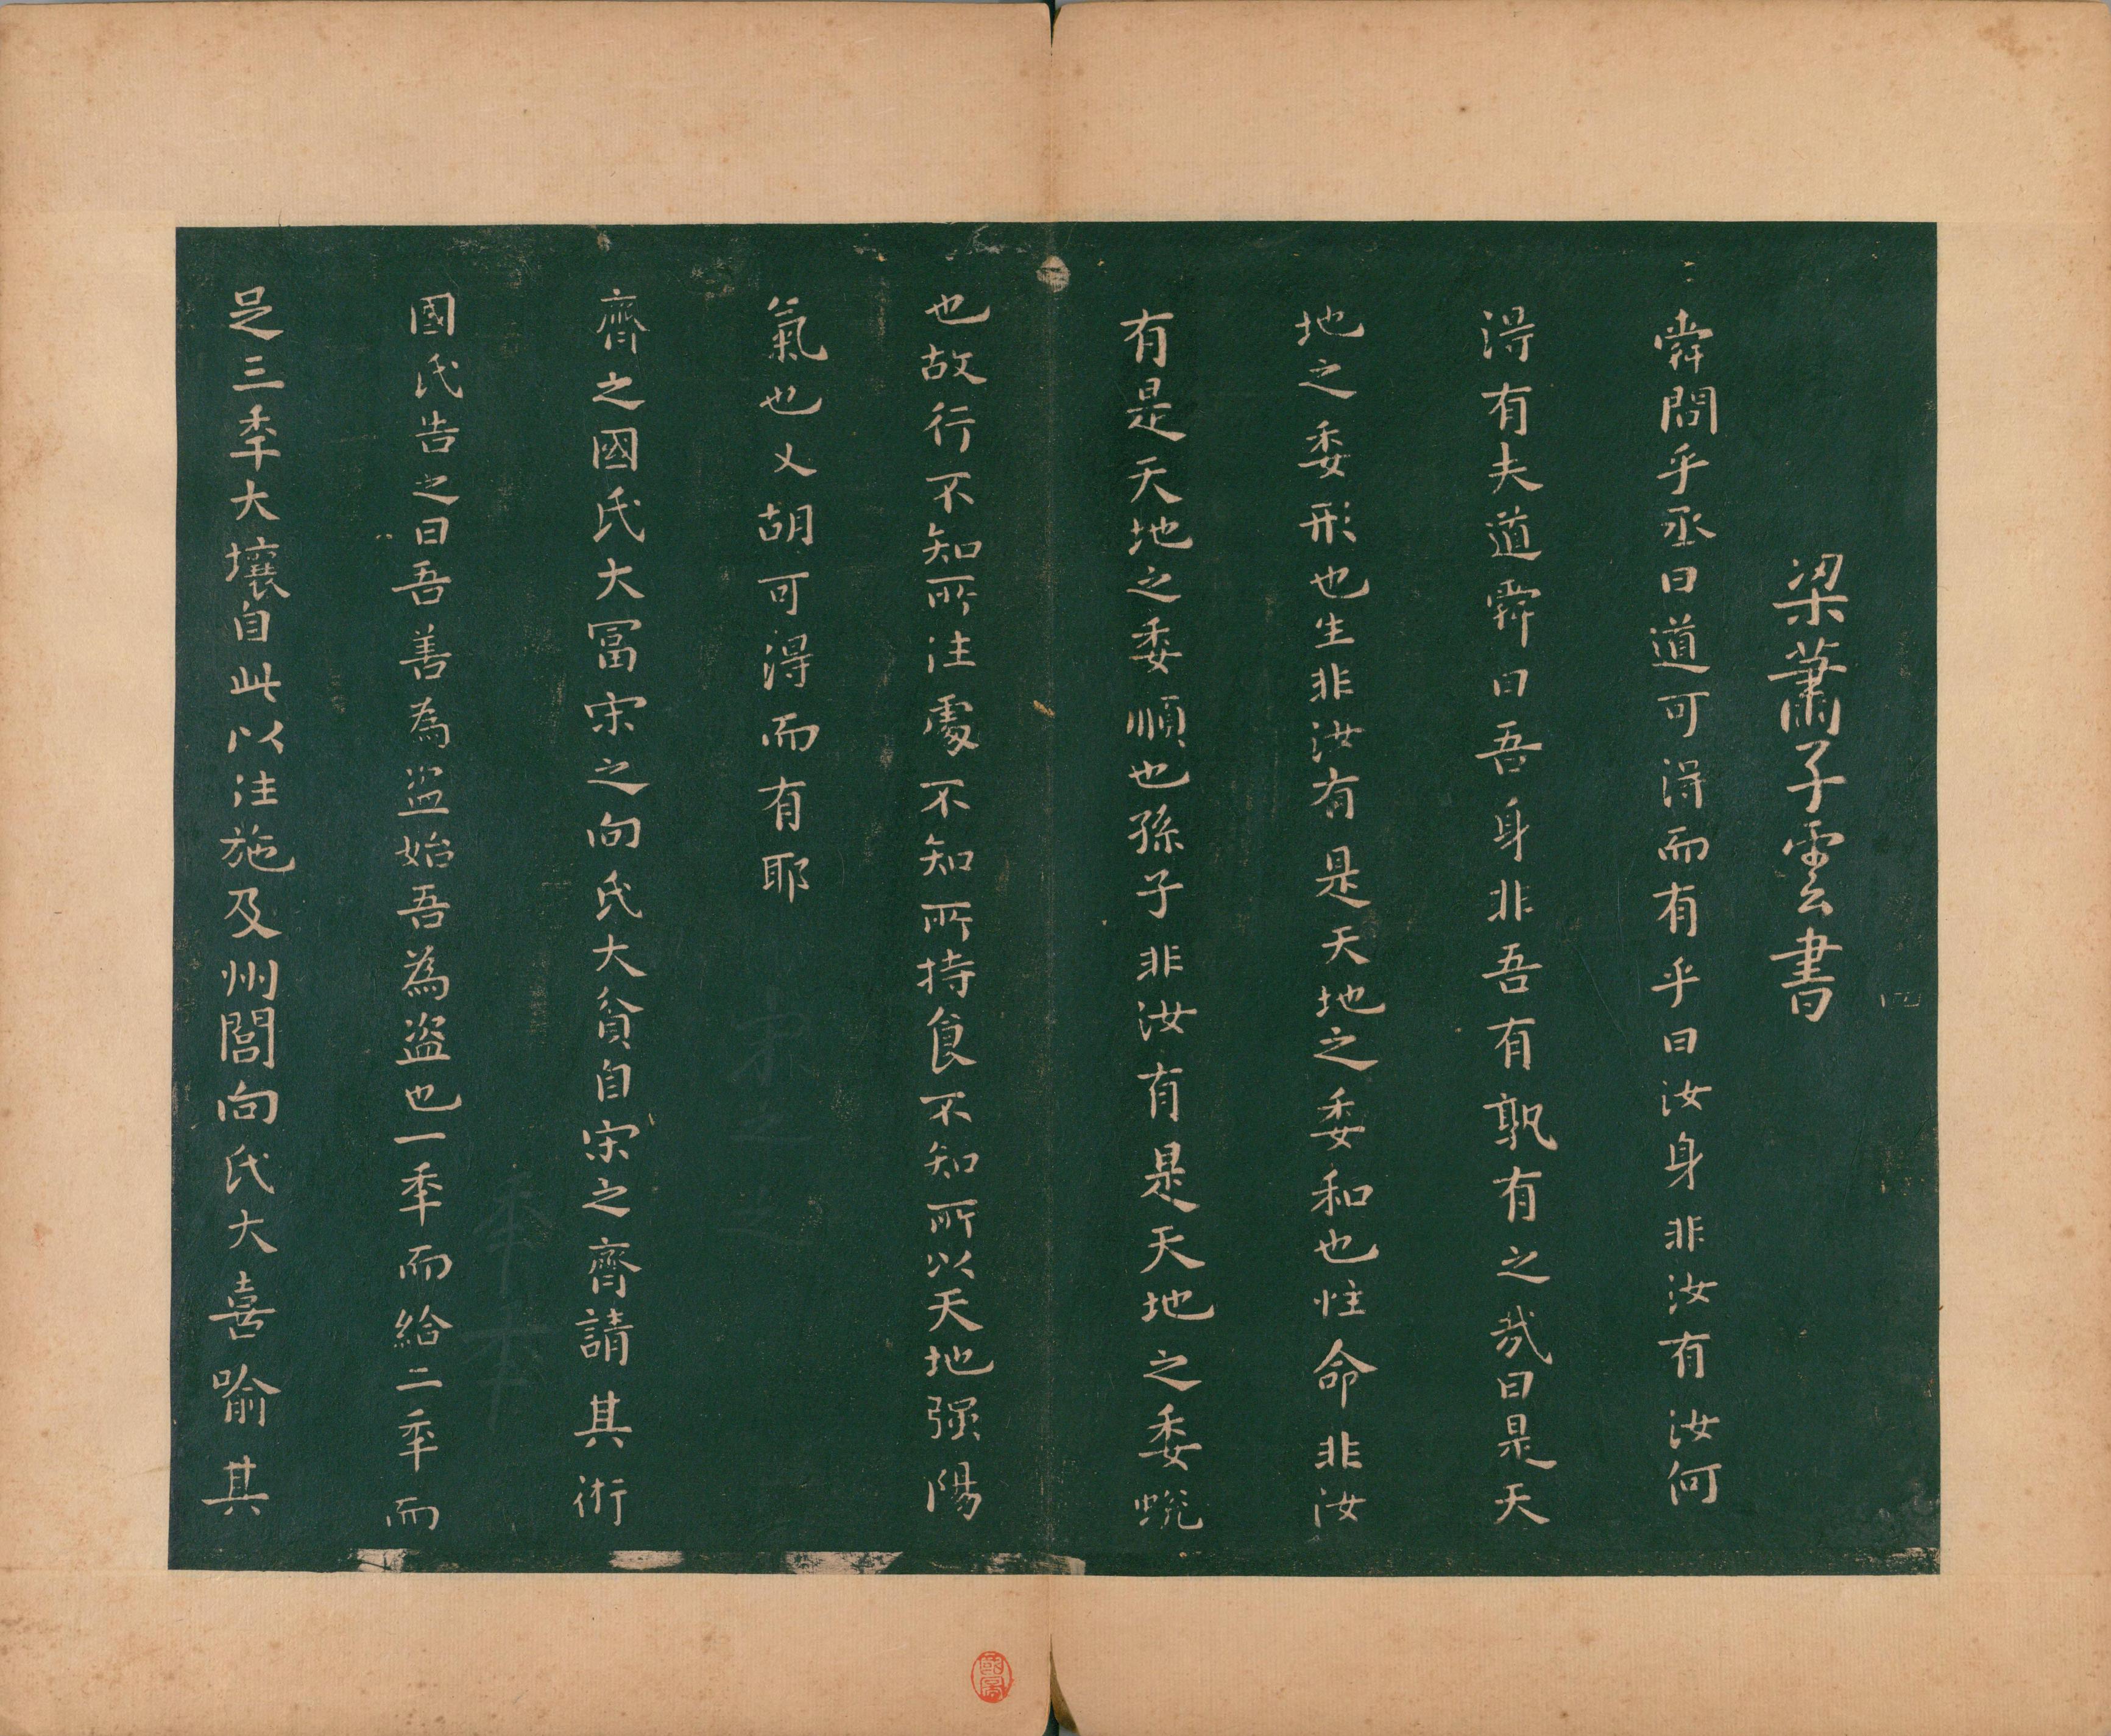 梁蕭子雲書
舜問乎丞曰道可得而有乎曰汝身非汝有汝何
得有夫道舜曰吾身非吾有孰有之哉曰是天
地之委形也生非汝有是天地之委和也性命非汝
有是天地之委順也孫子非汝有是天地之委蛻
也故行不知所往處不知所持食不知所以天地强陽
氣也又胡可得而有耶
齊之國氏大冨宋之向氏大貧自宋之齊請其術
國氏告之曰吾善為盜始吾為盜也一年而給二年而
足三年大壤自此以往施及州閭向氏大喜喻其